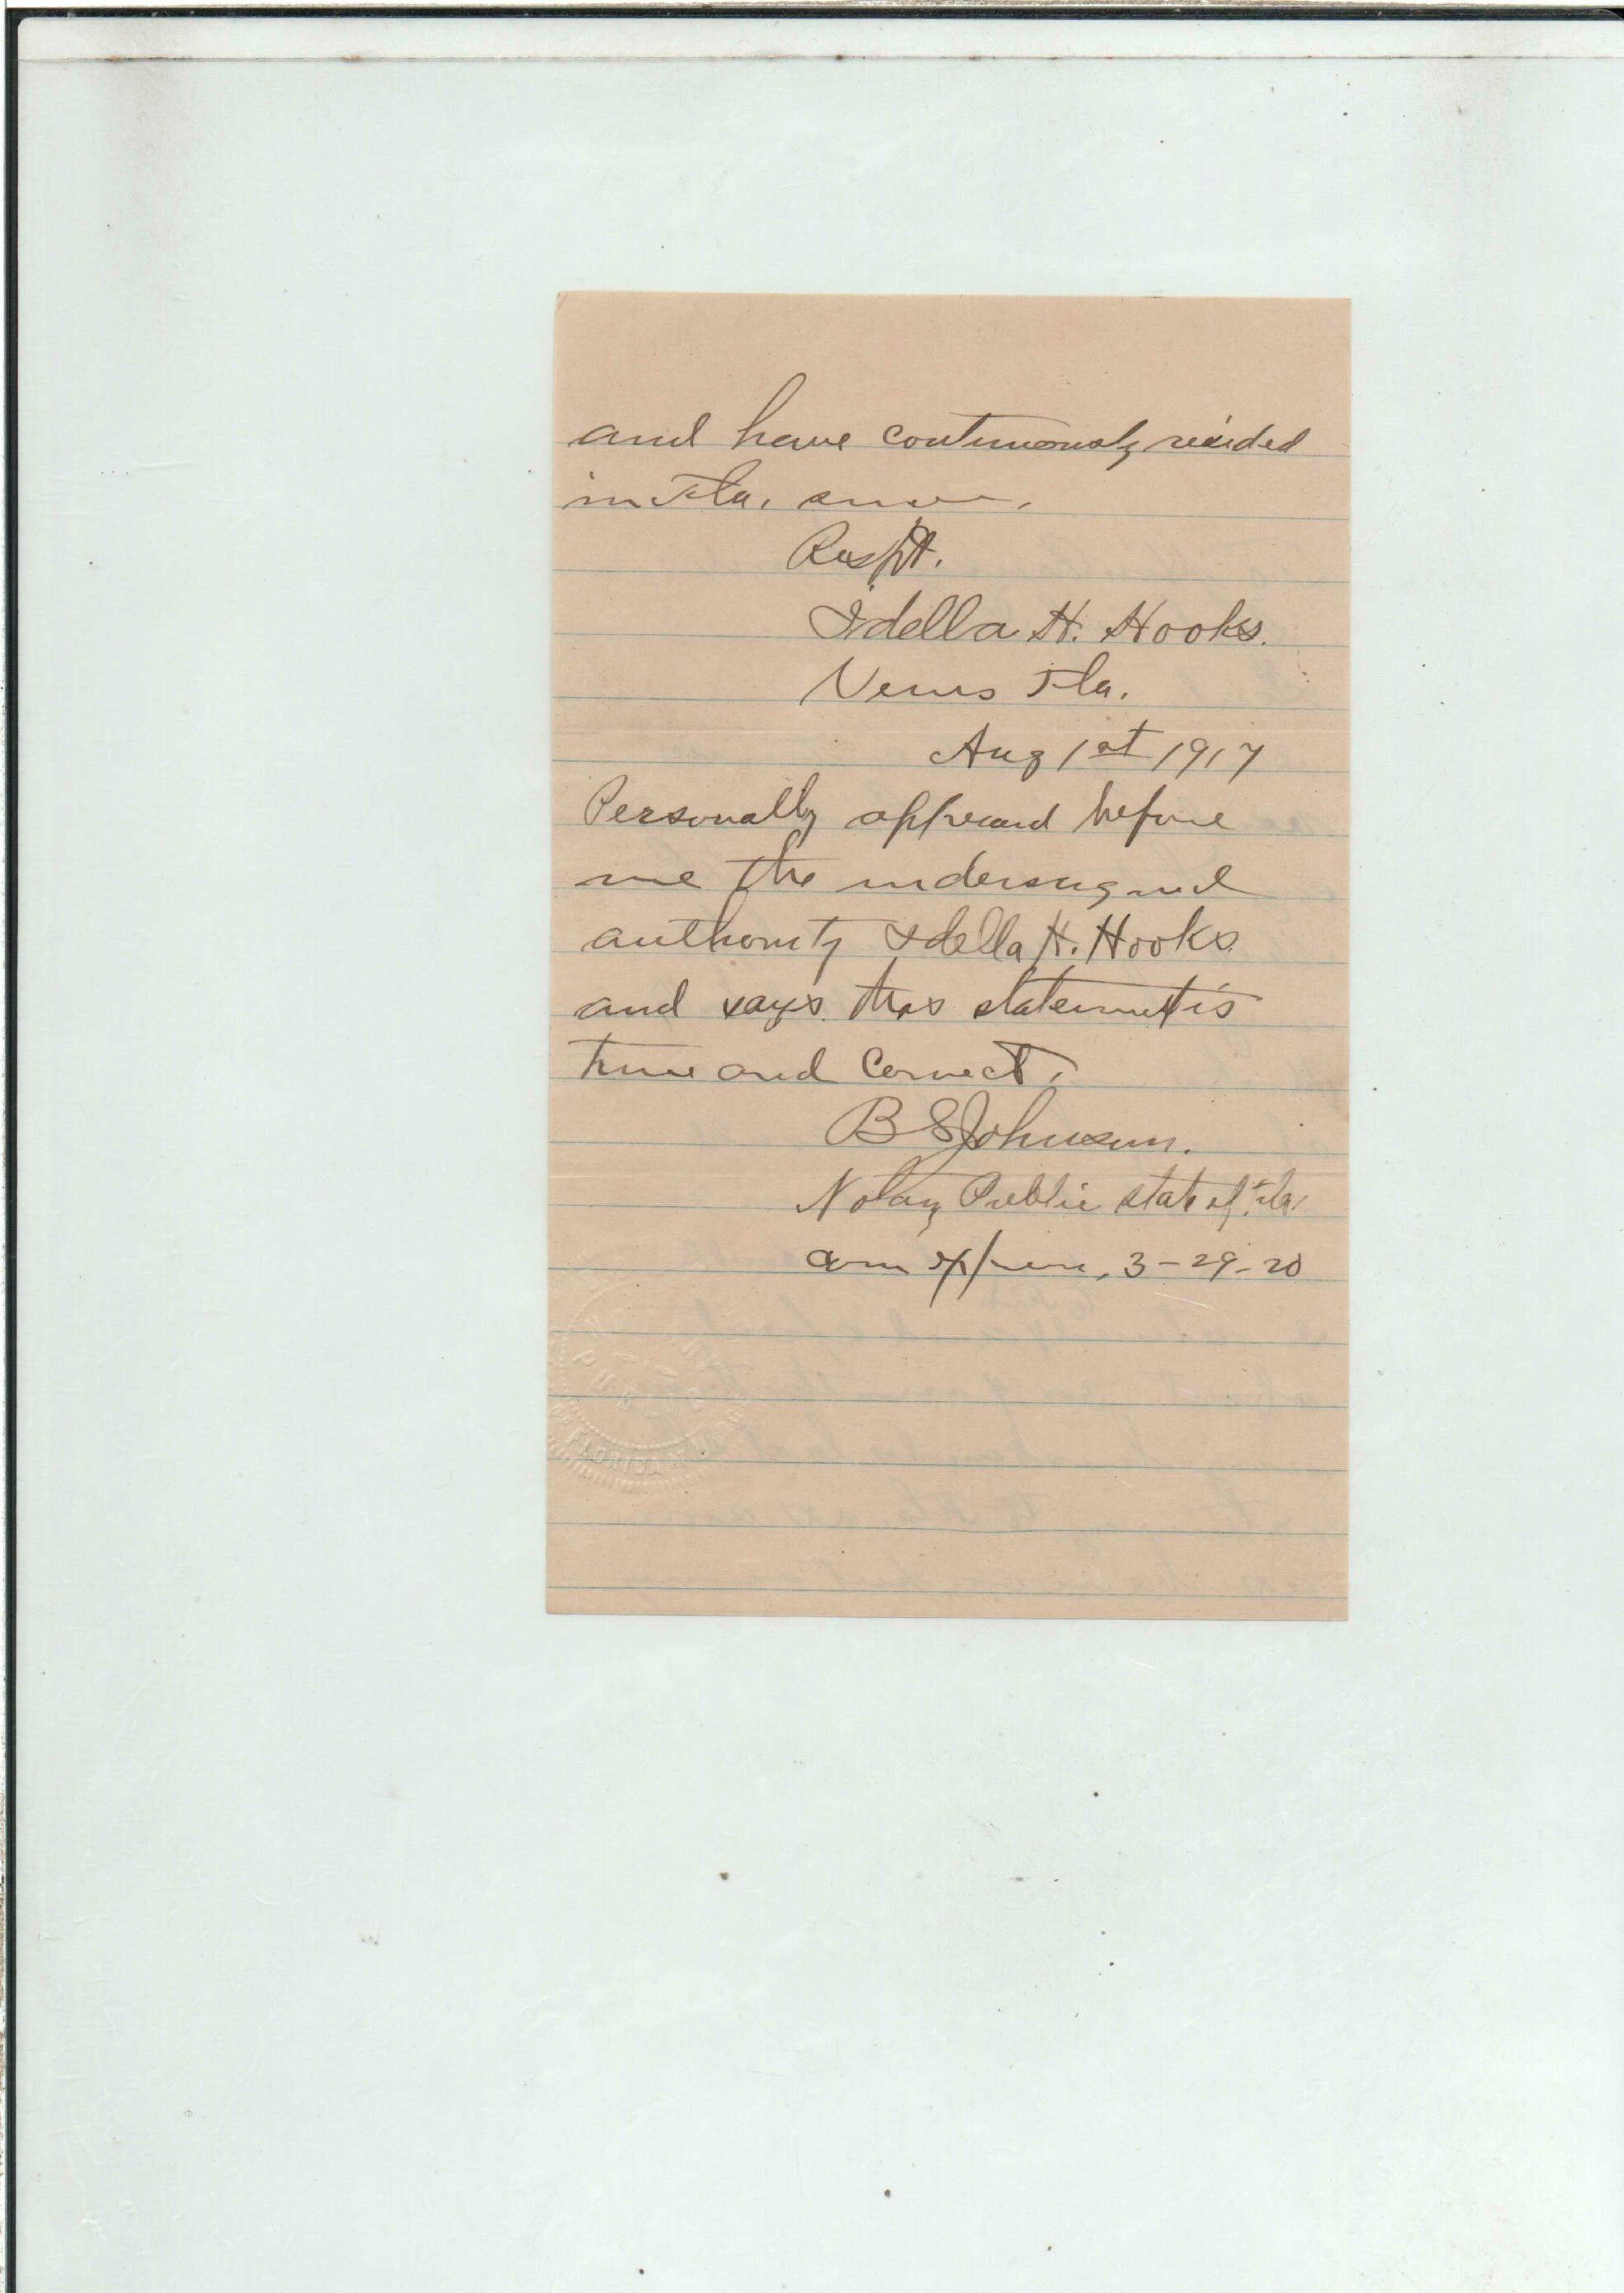 and have continuously resided
in Fla. since.
Respt.
Idella H. Hooks.
Venus Fla.
Aug 1st 1917
Personally appeard before
me the undersigned
authority Idella H. Hooks
and says this statement is
true and correct.
B S Johnson.
Notary Public state of Fla.
Com expires, 3-29-20
PUBLIC
FLORIDA